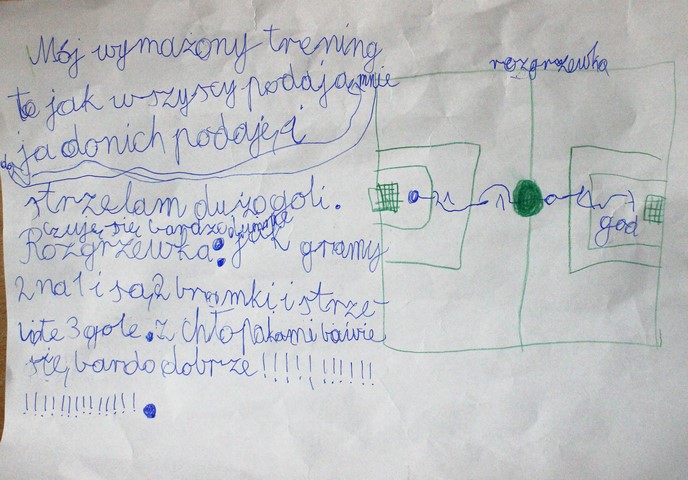 Mój wymażony trening
to jak wszyscy podają mnie
ja do nich podaję i
strzelam dużo goli.
czuję się bardzo dumnie
Rozgrzewka: jak gramy
2 na 1 i są 2 bramki i strze-
liłe 3 gole. z chłopakami bawie
się bardo dobrze!!!!!!!!!!!
!!!!!!!!!!!!!.
rozgrzewka